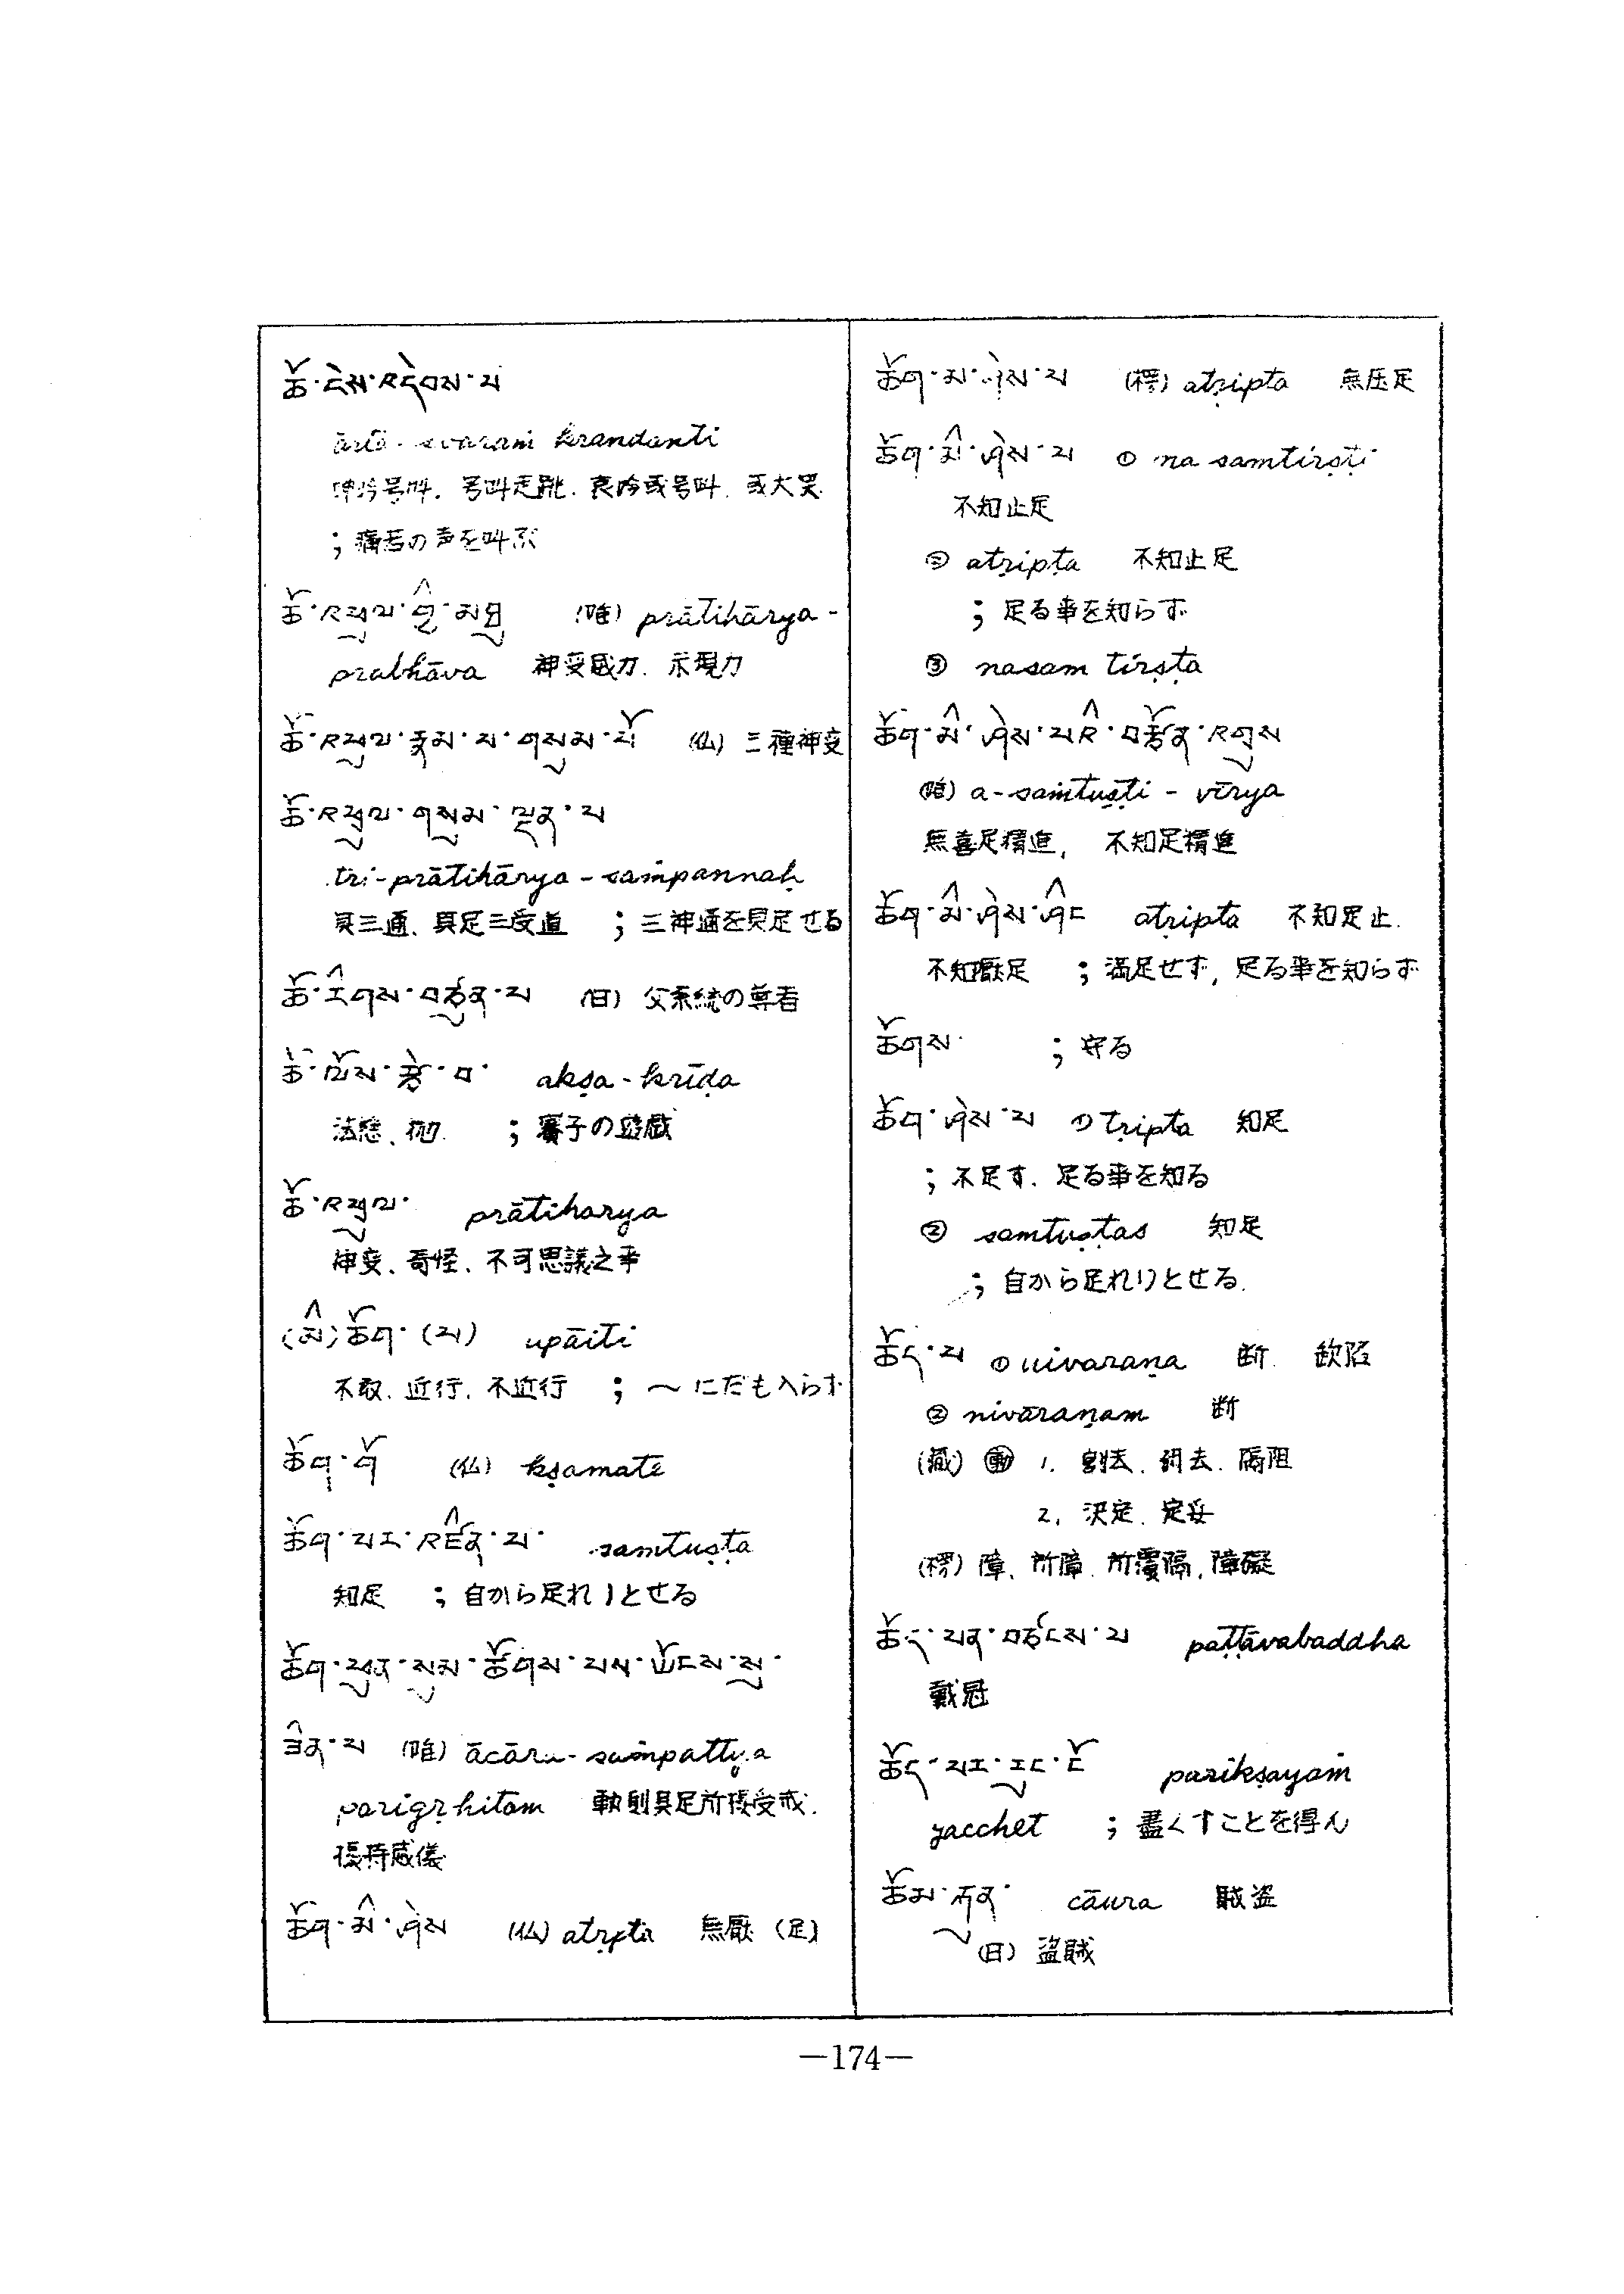 ཆོ་ངེས་འདེབས་པ
krandanti
号叫走
; 痛苦の声を叫ぶ
ཆོ་འཕྲུལ་གྱི་མཐུ (唯) prātihārya-
prabhāva 神変威力、示現力
ཆོ་འཕྲུལ་རྣམ་པ་གསུམ་པོ (仏) 三種神変
ཆོ་འཕྲུལ་གསུམ་ལྡན་པ
tri-prātihārya-saṁpannaḥ
具三通、具足三変道 ; 三神通を具足せる
ཆོ་རིགས་བཙུན་པ (日) 父系統の尊者
ཆོ་ལོས་རྩེ་བ་ akṣa-krīḍa
; 賽子の遊戯
ཆོ་འཕྲུལ་ prātiharya
神変、奇怪、不可思議之事
(མི)ཆོག་(པ) upāiti
不敢、近行、不近行 ; 〜にだも入らず
ཆོག་གོ (仏) kṣamate
ཆོག་པར་འཛིན་པ་ samtuṣṭa
知足 ; 自から足れりとせる
ཆོག་ཕུན་སུམ་ཚོགས་པས་ཡོངས་སུ་
ཟིན་པ (唯) ācāra-saṁpattya
parigṛhitam 軌則具足所攝受戒.
攝持威儀
ཆོག་མི་ཤེས (仏) atṛpta 無厭 (足)
ཆོག་མ་ཤེས་པ (稡) atṛipta 無圧足
ཆོག་མི་ཤེས་པ ① na samtirṣṭi
不知止足
② atṛipṭa 不知止足
; 足る事を知らず
③ nasam tirṣṭa
ཆོག་མི་ཤེས་པའི་བརྩོན་འགྲུས
(唯) a-saṁtuṣṭi-vīrya
無喜足精進, 不知足精進
ཆོག་མི་ཤེས་ཤིང atṛipta 不知足止.
不知厭足 ; 満足せず, 足る事を知らず
ཆོགས་ ; 守る
ཆོག་ཤེས་པ ① tṛipta 知足
; 不足す、足る事を知る
② samtuṣṭas 知足
; 自から足れりとせる.
ཆོད་པ ① nivaraṇa 断 欽陥
② nivāraṇam 断
(蔵) 動 1. 割去、 隔阻
2, 決定、定妥
障、所障、所覆隔, 障礙
ཆོད་པན་བཅིངས་པ paṭṭāvabaddha
戴冠
ཆོད་པར་རུང་ངོ parikṣayaṁ
yacchet ; 盡くすことを得ん
ཆོམ་རྐུན་ cāura 賊盗
(日) 盗賊
—174—